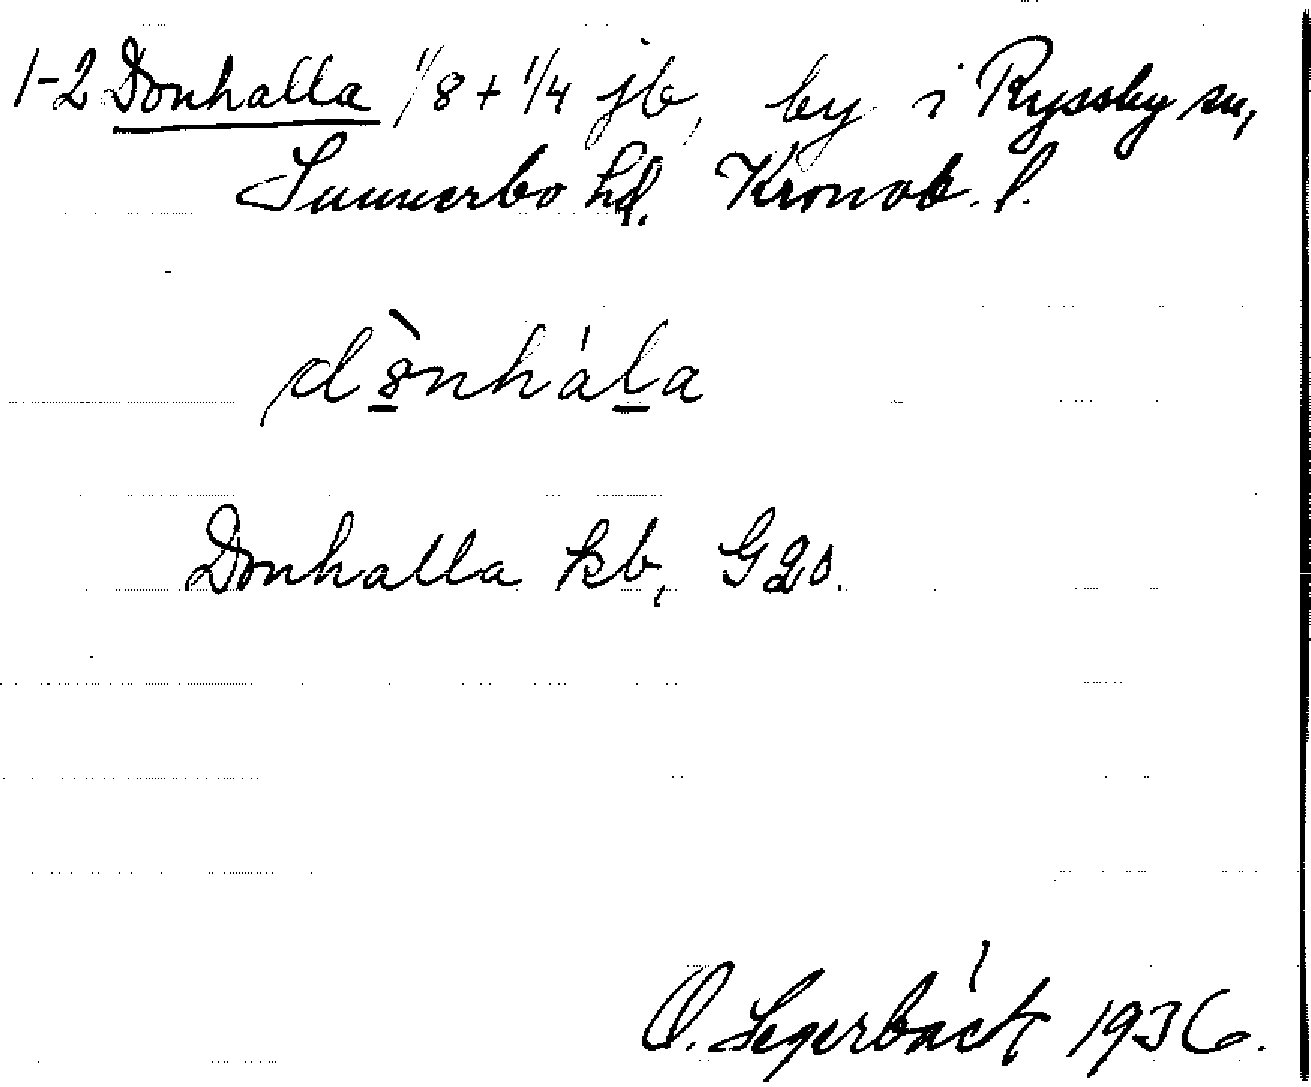 1-2 Donhalla 1/8 + 1/4 jb, by i Ryssby sn,
Sunnerbo hd. Kronob. l.
dònhála
Donhalla kb, G20.
O. Segerbäck 1936.